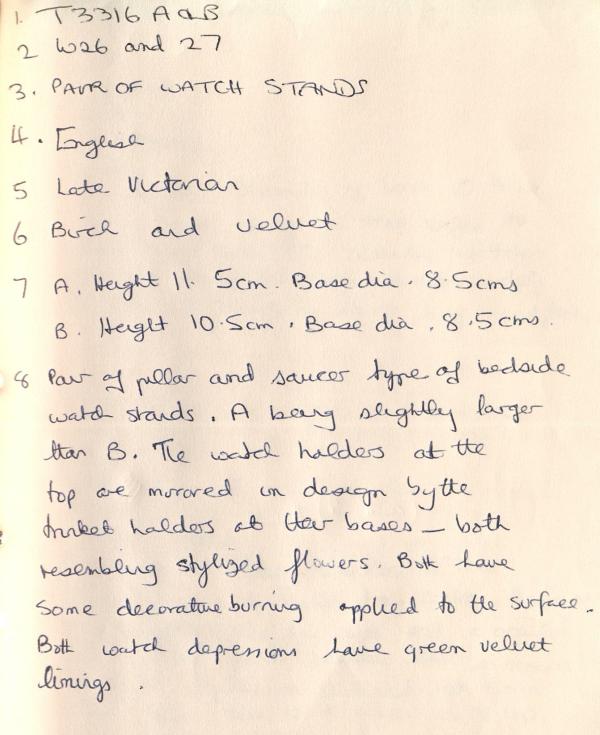 1. T3316 A & B
2 W26 and 27
3. PAIR OF WATCH STANDS
4. English
5 Late Victorian
6 Birch and velvet
7 A. Height 11.5cm. Base dia. 8.5cms
B. Height 10.5cm. Base dia. 8.5cms.
8 Pair of pillar and saucer type of bedside
watch stands. A being slightly larger
than B. The watch holders at the
top are mirrored in design by the
trinket holders at their bases – both
resembling stylized flowers. Both have
some decorative burning applied to the surface.
Both watch depressions have green velvet
linings.